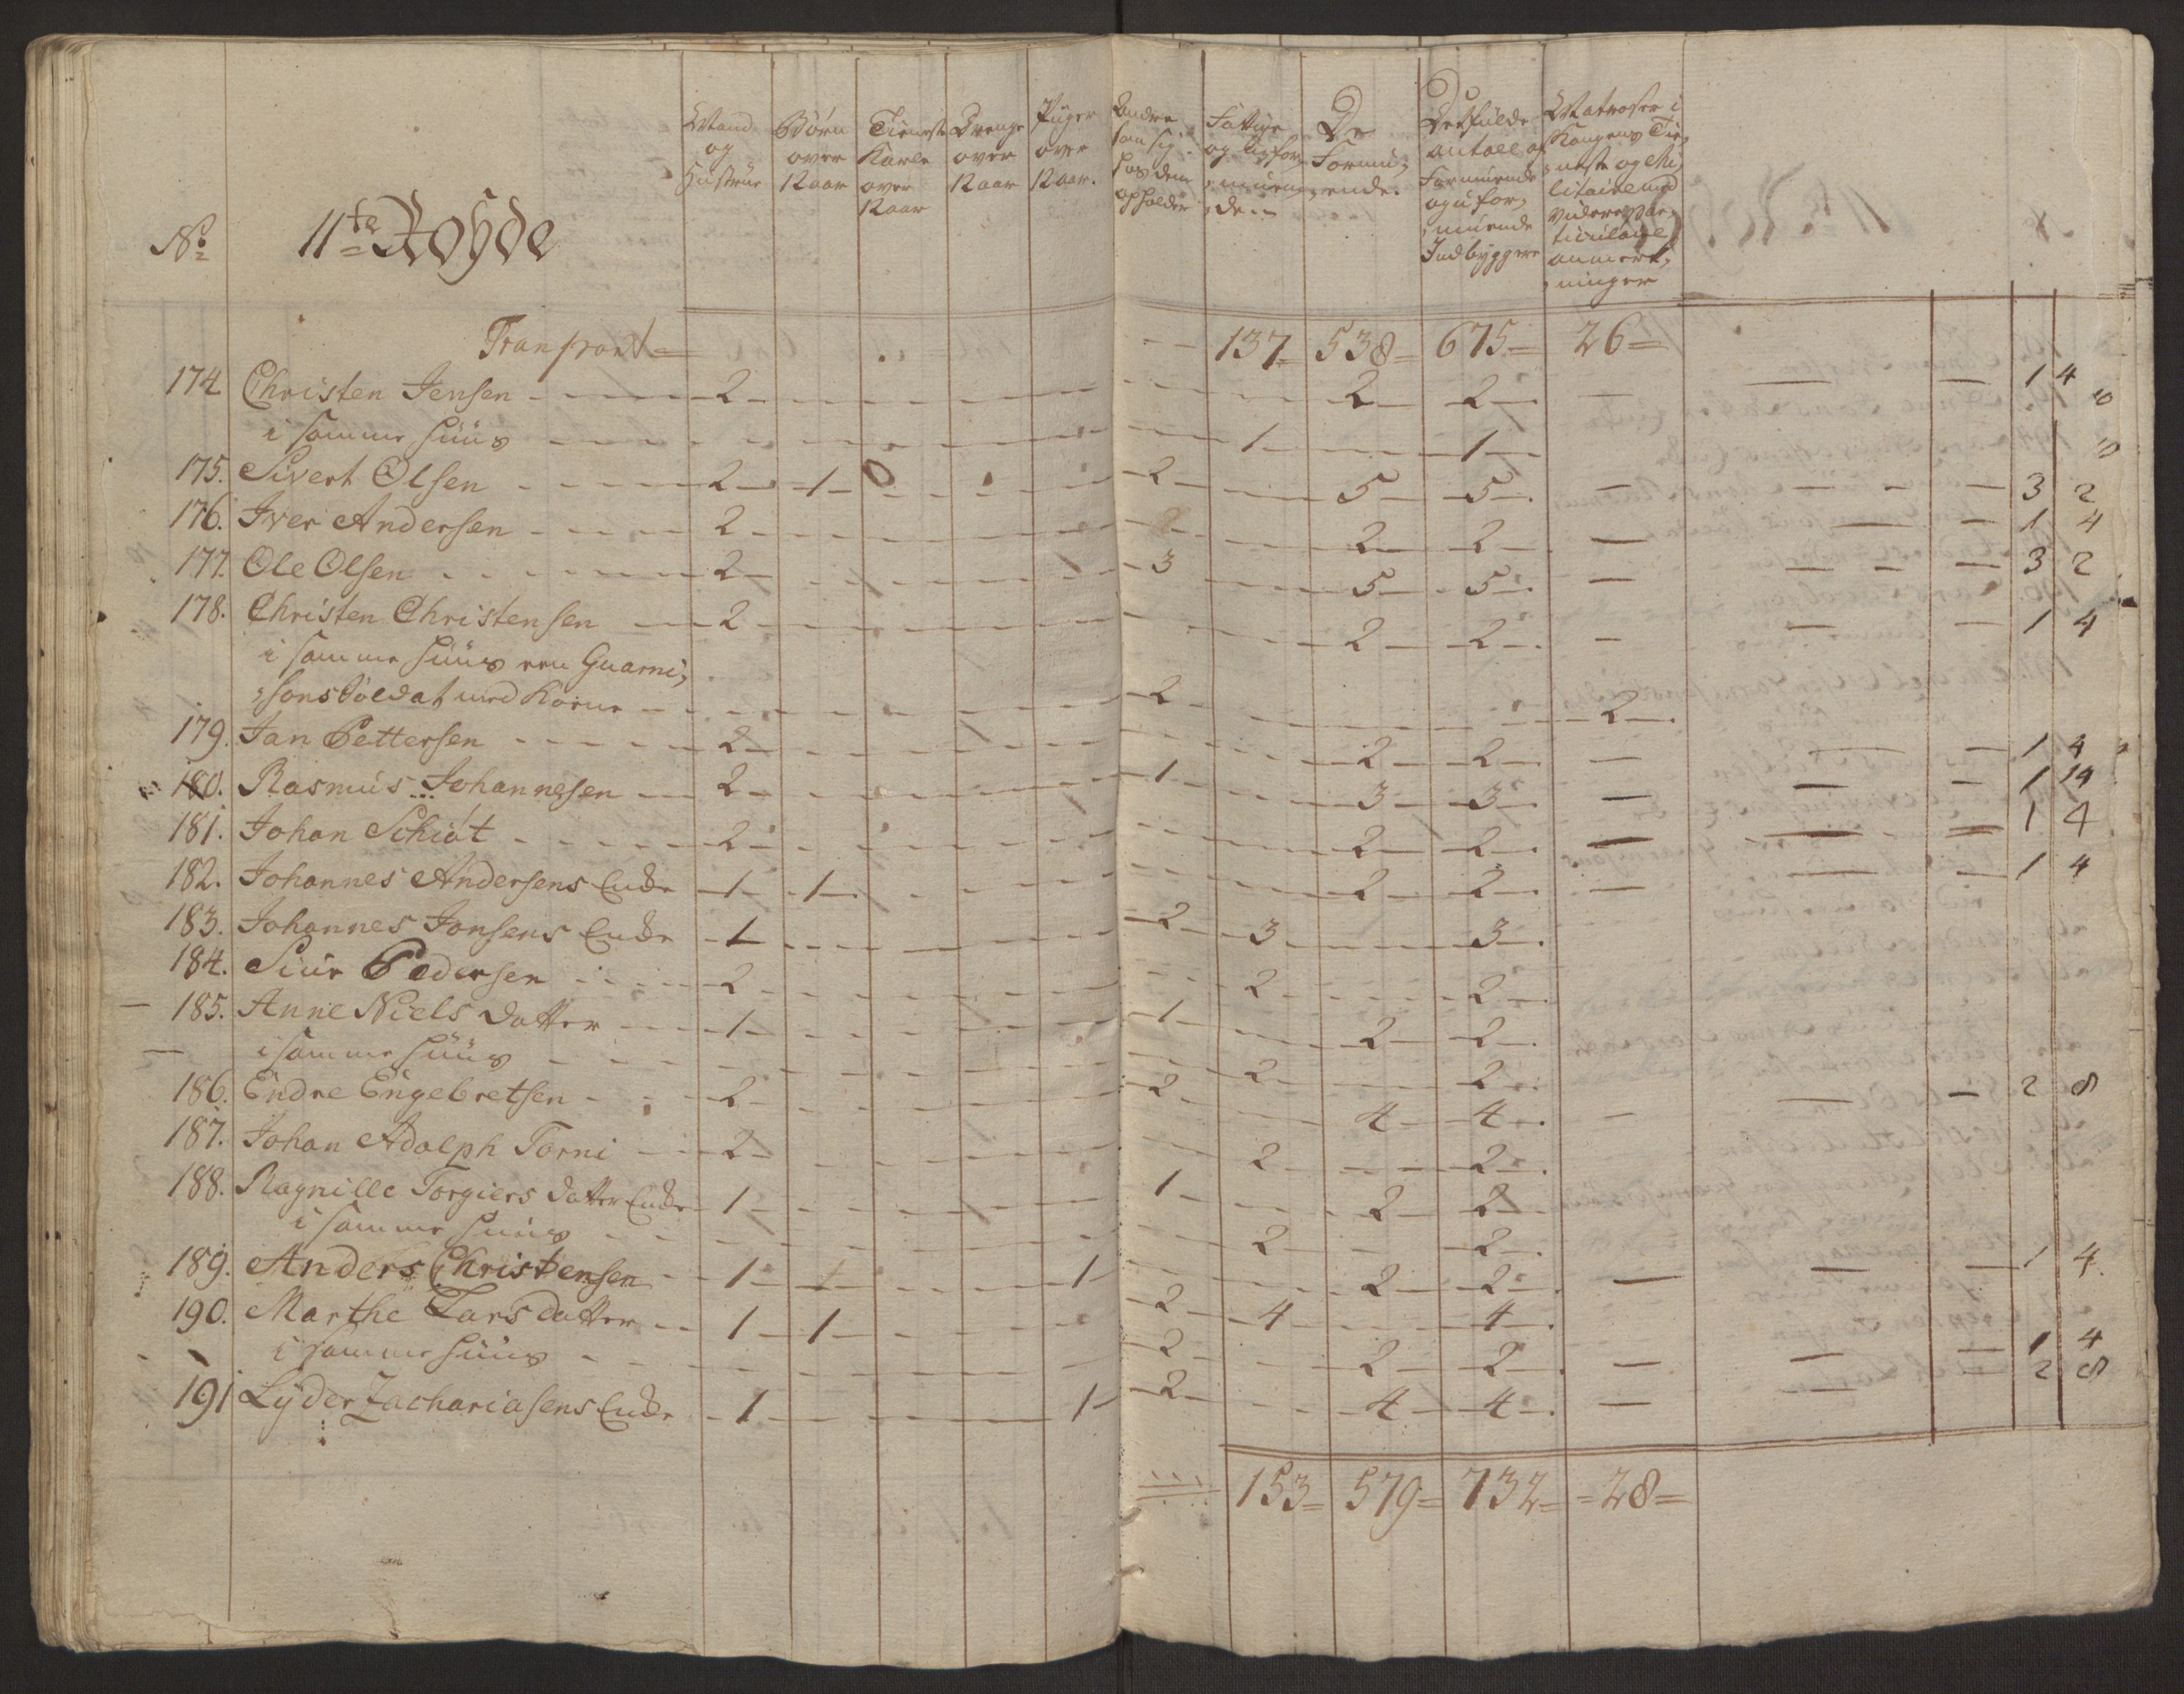 No 11te Rohde
Mand og Hustrue
Børn over 12 aar
Tieneste Karle over 12 aar
Drenge over 12 aar
Piiger over 12 aar.
Andre som sig hos dem opholder
Fattige og Uformuende
De Formuende.
Det fulde antall af Formuende og uformuende Indbyggere
Matroser i Kongens Tieneste og Militaire med videre particulaire anmerkninger
Transport = 137 538 675 26
174 Christen Jensen 2 2 2 1 4
i samme Huus 1 1
175. Sivert Olsen 2 1 2 5 5 3 2
176. Iver Andersen 2 2 2 1 4
177. Ole Olsen 2 3 5 5 3 2
178. Christen Christensen 2 2 2 1 4
i samme Huus een Guarni-
sons Soldat med Kone 2 2
179. Jan Pettersen 2 2 2 1 4
180. Rasmus Johannesen 2 1 3 3 1 14
181. Johan Schiøt 2 2 2 1 4
182. Johannes Andersens Encke 1 1 2 2 1 4
183. Johannes Jonsens Encke 1 2 3 3
184. Siur Pedersen 2 2 2
185. Anne Niels Datter 1 1 2 2
i samme Huus 2 2
186. Endre Engebretsen 2 2 4 4 2 8
187. Johan Adolph Torni 2 2 2
188. Ragnille Torgiers Datter Encke 1 1 2 2
i samme Huus 2 2
189. Anders Christensen 1 1 2 2 1 4
190. Marthe Lars Datter 1 1 2 4 4
i samme Huus 2 2 2 1 4
191 Lyder Zachariasens Encke 1 1 2 4 4 2 8
153 579 732 28